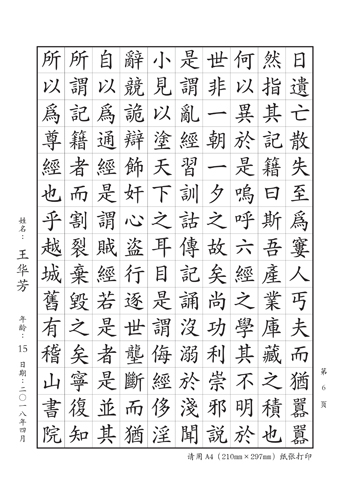 日遺亡散失至爲窶人丐夫而猶囂囂
然指其記籍曰斯吾產業庫藏之積也
何以異於是嗚呼六經之學其不明於
世非一朝一夕之故矣尚功利崇邪說
是謂亂經習訓詁傳記誦沒溺於淺聞
小見以塗天下之耳目是謂侮經侈淫
辭競詭辯飾奸心盜行逐世壟斷而猶
自以爲通經是謂賊經若是者是並其
所謂記籍者而割裂棄毀之矣寧復知
所以爲尊經也乎越城舊有稽山書院
姓名：王华芳 年龄：15 日期：二〇一八年四月
第 6 页
请用 A4（210mm×297mm）纸张打印